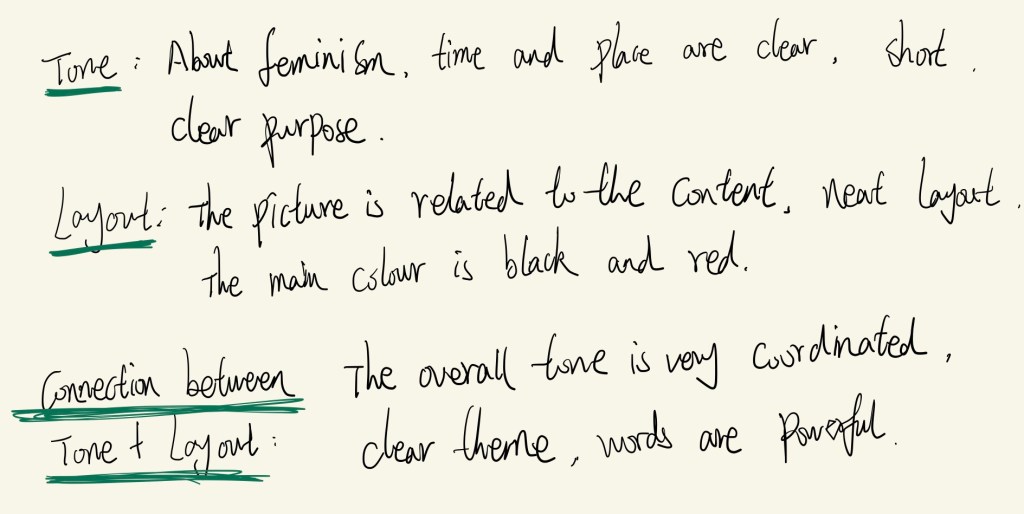 Tone: About feminism, time and place are clear, short.
clear purpose.
Layout: The picture is related to the content, neat layout.
The main colour is black and red.
Connection between The overall tone is very coordinated,
Tone + Layout: clear theme, words are powerful.